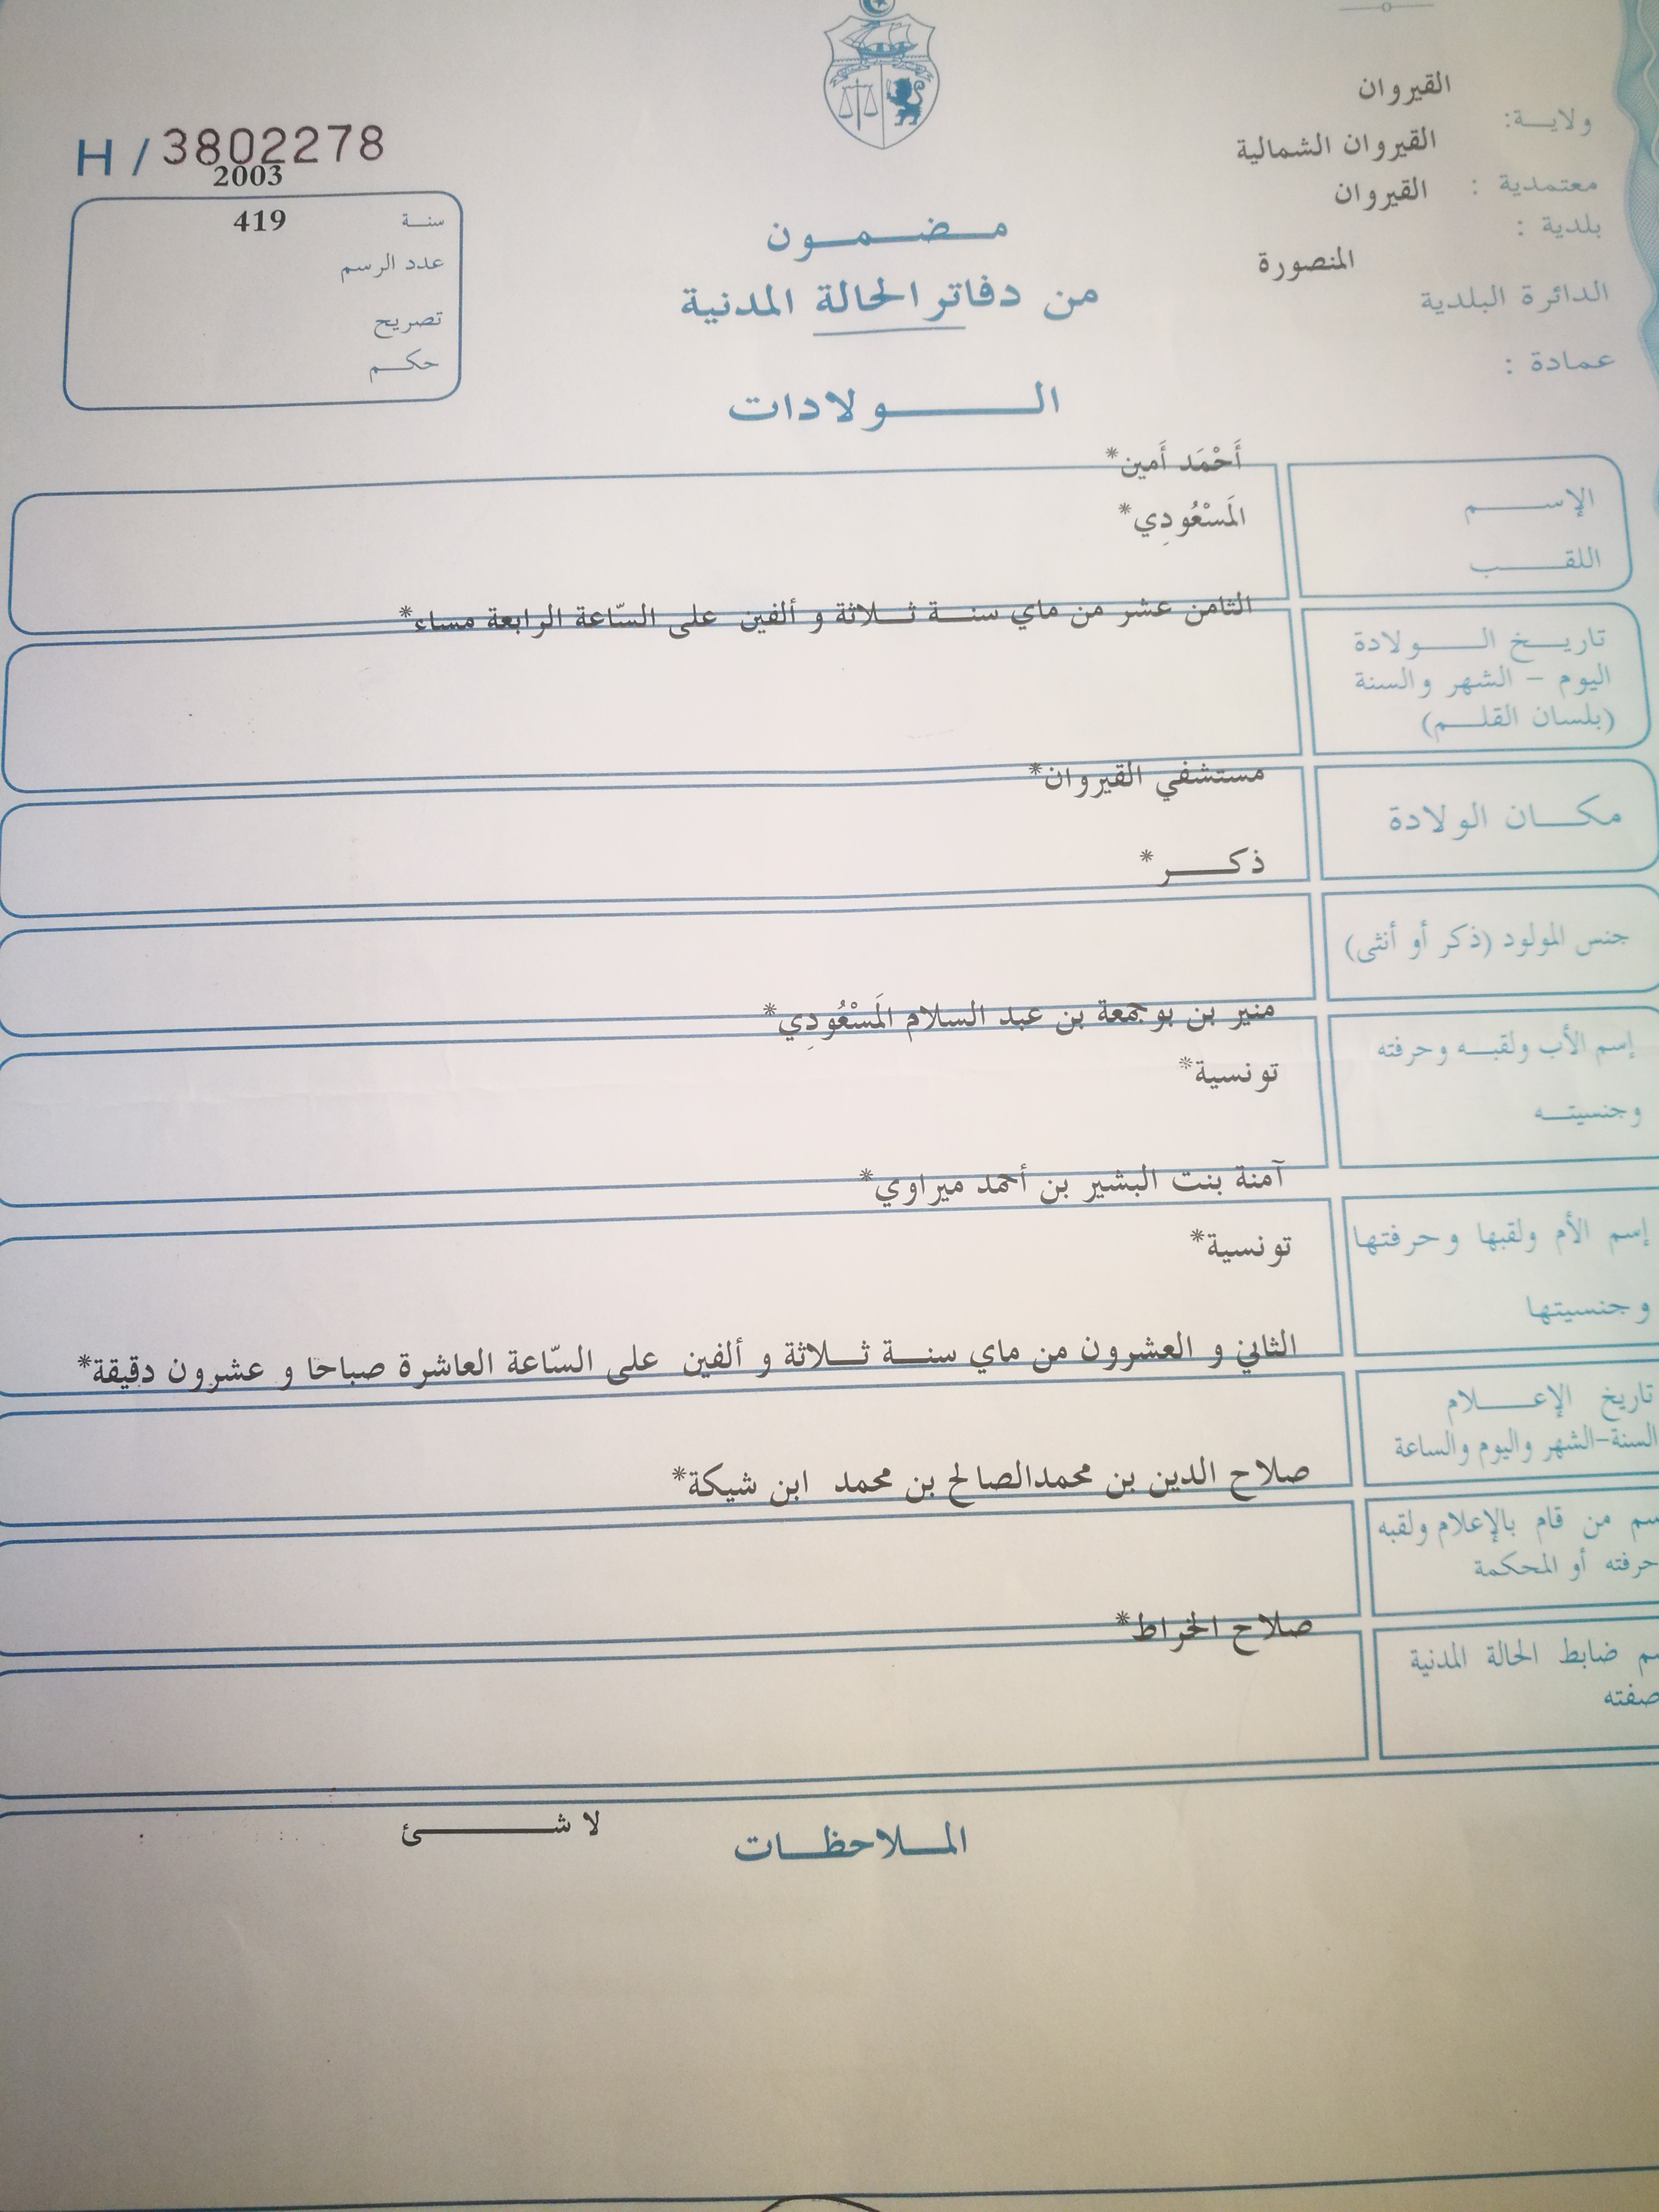 القيروان
ولاية:
القيروان الشمالية
معتمدية :
القيروان
بلدية :
المنصورة
الدائرة البلدية
عمادة :
H / 3802278
2003
سنة
419
عدد الرسم
تصريح
حكم
مضمون
من دفاتر الحالة المدنية
الولادات
أَحْمَد أَمين*
الإسم
المَسْعُودِي*
اللقب
الثامن عشر من ماي سنة ثلاثة و ألفين على السّاعة الرابعة مساء*
تاريخ الولادة
اليوم - الشهر والسنة
(بلسان القلم)
مستشفي القيروان*
مكان الولادة
ذكر*
جنس المولود (ذكر أو أنثى)
منير بن بوجمعة بن عبد السلام المَسْعُودِي*
إسم الأب ولقبه وحرفته
تونسية*
وجنسيته
آمنة بنت البشير بن أحمد ميراوي*
إسم الأم ولقبها وحرفتها
تونسية*
وجنسيتها
الثاني و العشرون من ماي سنة ثلاثة و ألفين على السّاعة العاشرة صباحا و عشرون دقيقة*
تاريخ الإعلام
السنة-الشهر واليوم والساعة
صلاح الدين بن محمدالصالح بن محمد ابن شيكة*
سم من قام بالإعلام ولقبه
حرفته أو المحكمة
صلاح الخراط*
سم ضابط الحالة المدنية
صفته
الملاحظات
لا شئ